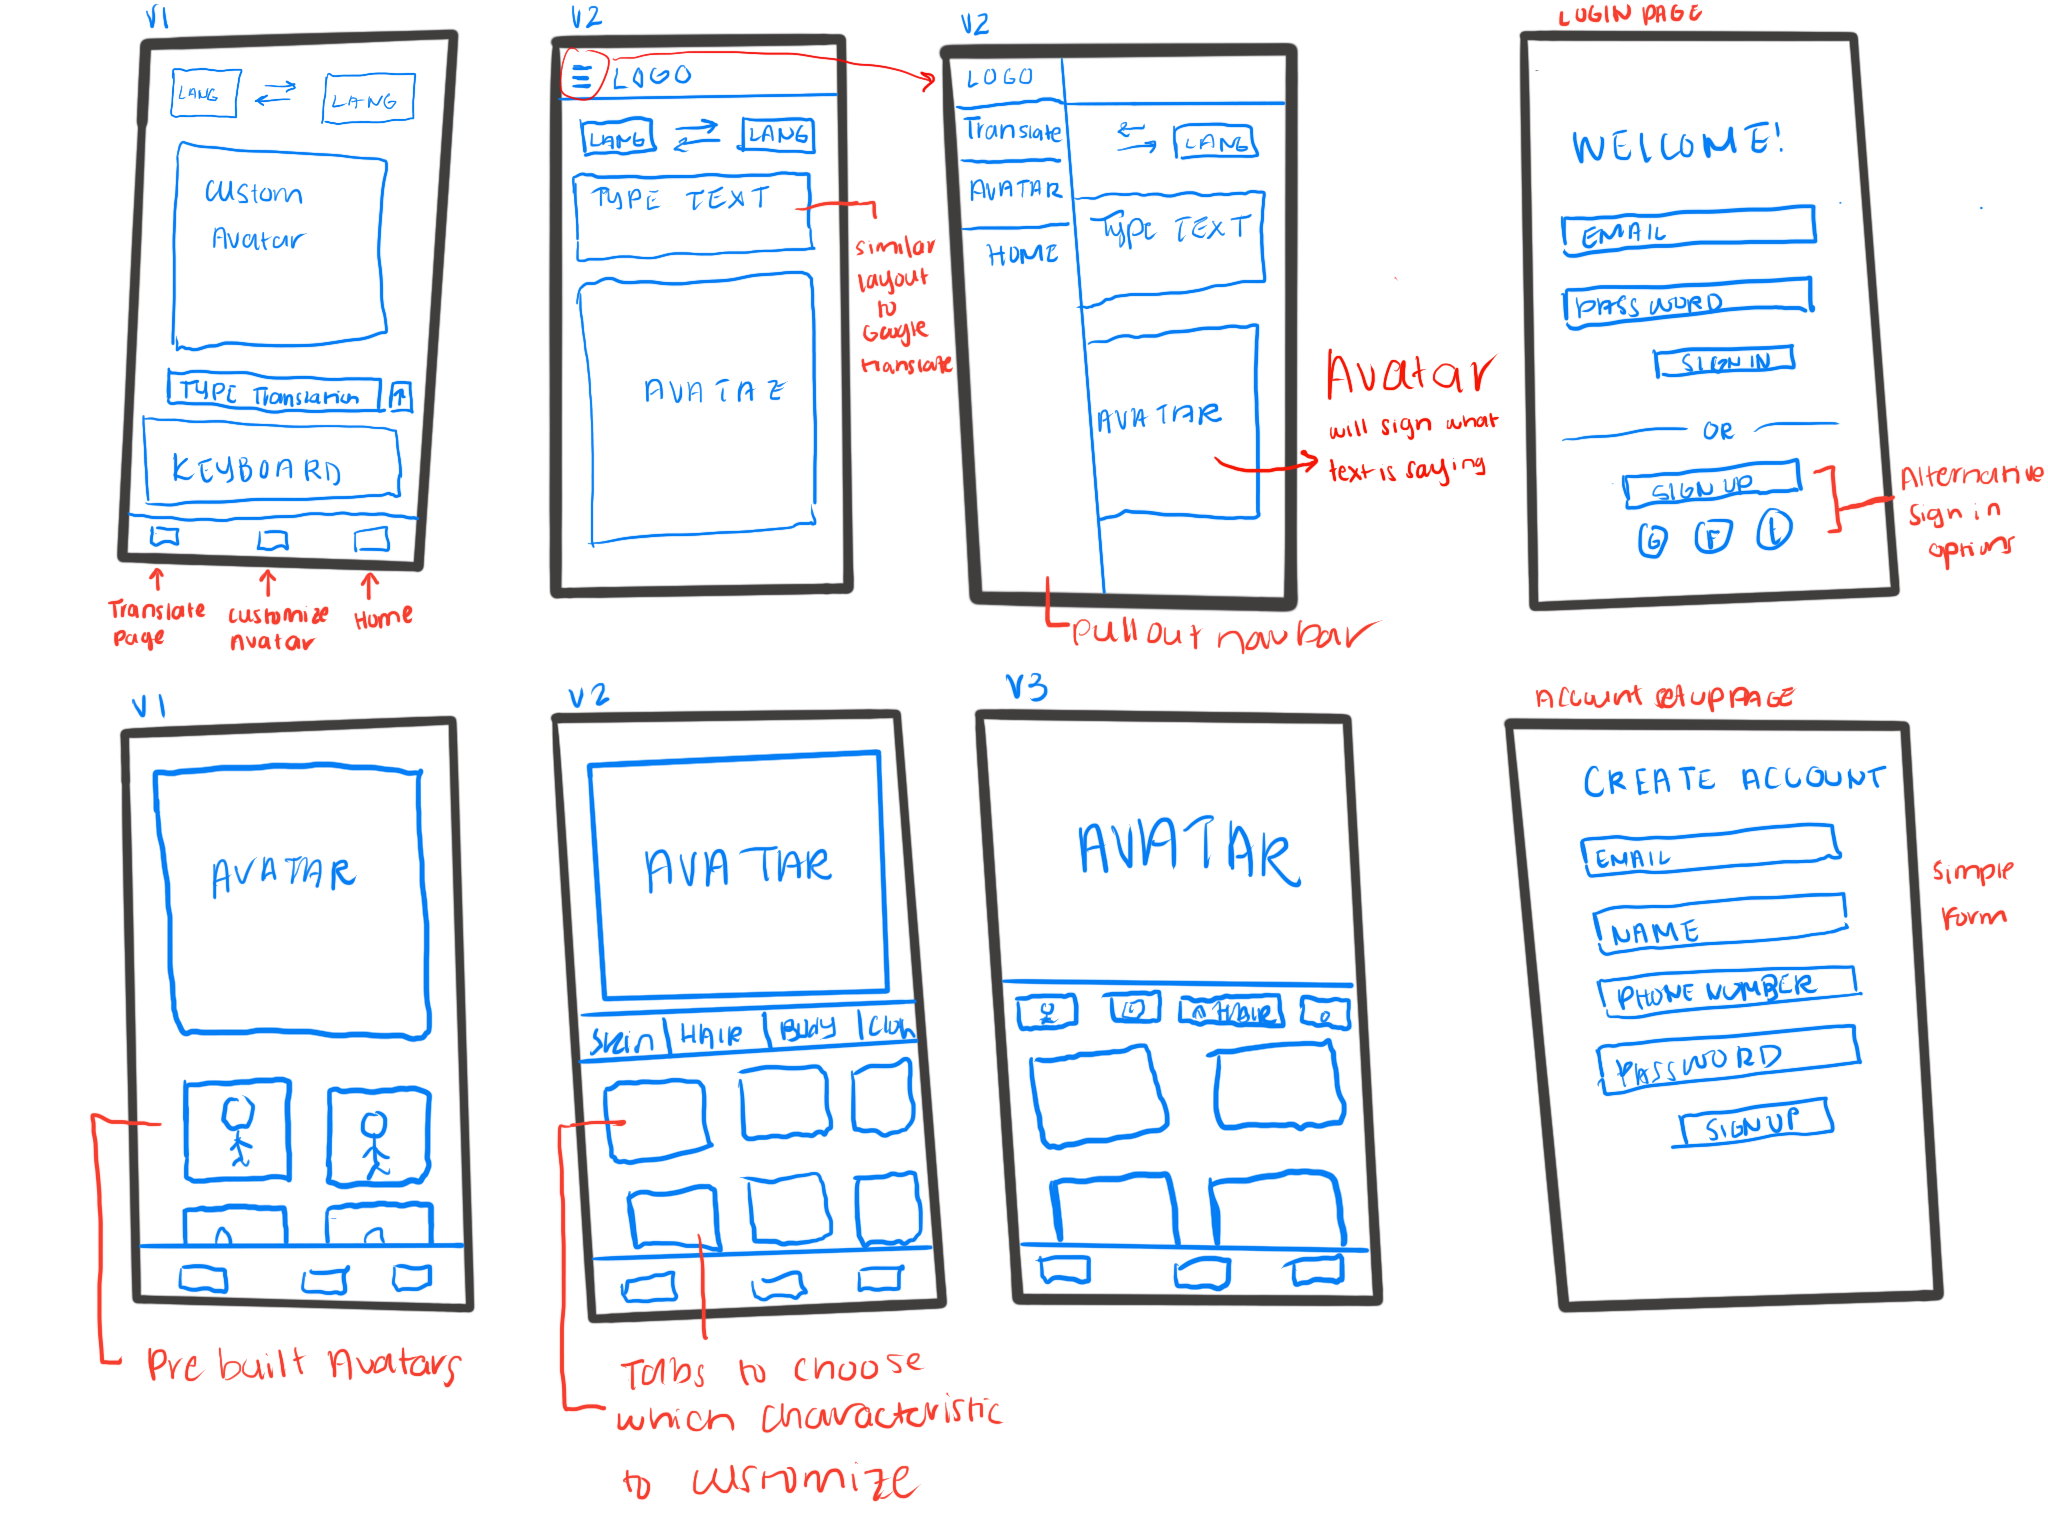 V1
LANG
LANG
Custom
Avatar
TYPE Translation
KEYBOARD
Translate
page
customize
Avatar
Home
V2
LOGO
LANG
LANG
TYPE TEXT
AVATAR
similar
layout
to
Google
translate
V2
LOGO
Translate
AVATAR
HOME
LANG
Type TEXT
AVATAR
Avatar
will sign what
text is saying
Pull out nav bar
LOGIN PAGE
WELCOME!
EMAIL
PASSWORD
SIGN IN
OR
SIGN UP
G F
Alternative
sign in
options
V1
AVATAR
Pre built Avatars
V2
AVATAR
Skin HAIR Body Cloth
Tabs to choose
which characteristic
to customize
V3
AVATAR
HAIR
Account setup PAGE
CREATE ACCOUNT
EMAIL
NAME
PHONE NUMBER
PASSWORD
SIGN UP
simple
form